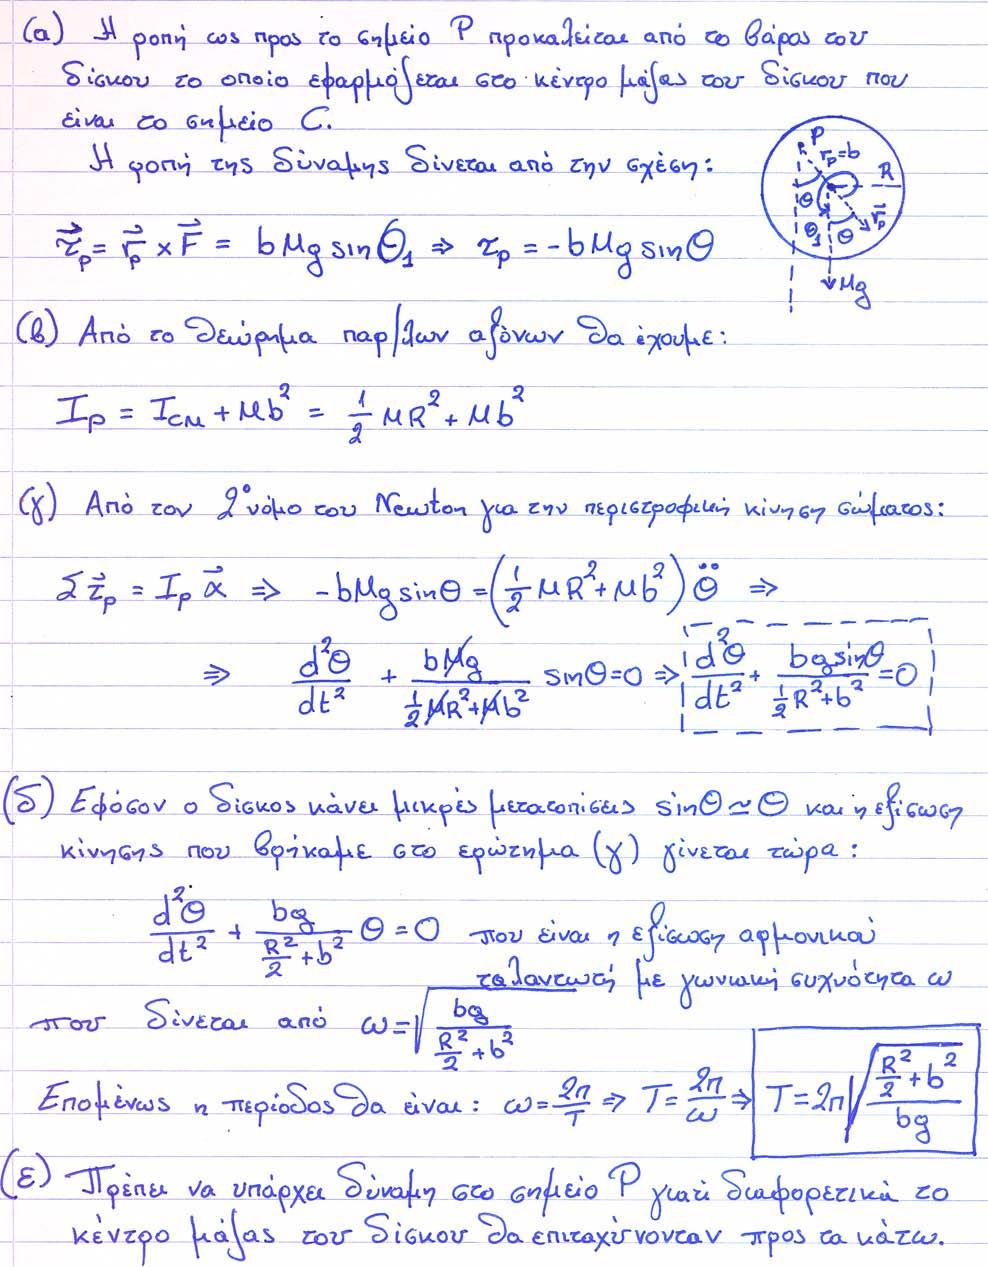 (α) Η ροπή ως προς το σημείο P προκαλείται από το βάρος του
δίσκου το οποίο εφαρμόζεται στο κέντρο μάζας του δίσκου που
είναι το σημείο C.
Η ροπή της δύναμης δίνεται από την σχέση:
P
r_p=b
R
θ
θ₁
θ
r⃗_p
Mg
τ⃗_p = r⃗_p × F⃗ = bMg sinθ₁ ⇒ τ_p = -bMg sinθ
(β) Από το θεώρημα παρ/λων αξόνων θα έχουμε:
I_P = I_CM + Mb² = 1/2 MR² + Mb²
(γ) Από τον 2° νόμο του Newton για την περιστροφική κίνηση σώματος:
Σ τ⃗_p = I_p α⃗ ⇒ -bMg sinθ = (1/2 MR² + Mb²) θ̈ ⇒
⇒ d²θ/dt² + bMg/(1/2 MR² + Mb²) sinθ = 0 ⇒ d²θ/dt² + bg sinθ/(1/2 R² + b²) = 0
(δ) Εφόσον ο δίσκος κάνει μικρές μετατοπίσεις sinθ ≃ θ και η εξίσωση
κίνησης που βρήκαμε στο ερώτημα (γ) γίνεται τώρα:
d²θ/dt² + bg/(R²/2 + b²) θ = 0 που είναι η εξίσωση αρμονικού
ταλαντωτή με γωνιακή συχνότητα ω
που δίνεται από ω = √(bg/(R²/2 + b²))
Επομένως η περίοδος θα είναι: ω = 2π/T ⇒ T = 2π/ω ⇒ T = 2π √((R²/2 + b²)/bg)
(ε) Πρέπει να υπάρχει δύναμη στο σημείο P γιατί διαφορετικά το
κέντρο μάζας του δίσκου θα επιταχύνονταν προς τα κάτω.